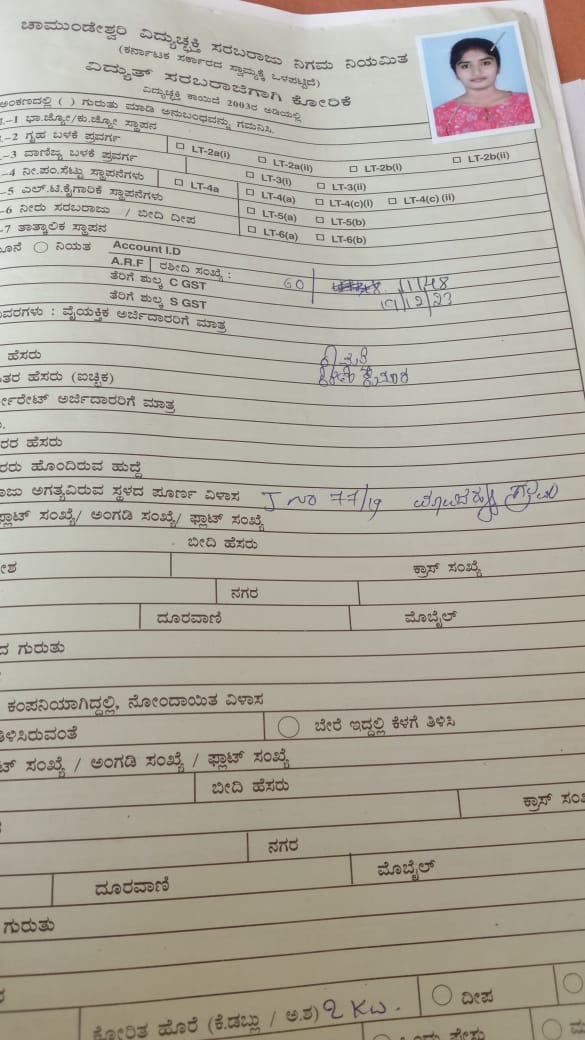 ಚಾಮುಂಡೇಶ್ವರಿ ವಿದ್ಯುಚ್ಛಕ್ತಿ ಸರಬರಾಜು ನಿಗಮ ನಿಯಮಿತ
(ಕರ್ನಾಟಕ ಸರ್ಕಾರದ ಸ್ವಾಮ್ಯಕ್ಕೆ ಒಳಪಟ್ಟಿದೆ)
ವಿದ್ಯುತ್ ಸರಬರಾಜಿಗಾಗಿ ಕೋರಿಕೆ
ವಿದ್ಯುಚ್ಛಕ್ತಿ ಕಾಯಿದೆ 2003ರ ಅಡಿಯಲ್ಲಿ
ಅಂಕಣದಲ್ಲಿ ( ) ಗುರುತು ಮಾಡಿ ಅನುಬಂಧವನ್ನು ಗಮನಿಸಿ.
-1 ಭಾ.ಜ್ಯೋ/ಕು.ಜ್ಯೋ ಸ್ಥಾಪನ
-2 ಗೃಹ ಬಳಕೆ ಪ್ರವರ್ಗ LT-2a(i) LT-2a(ii) LT-2b(i) LT-2b(ii)
-3 ವಾಣಿಜ್ಯ ಬಳಕೆ ಪ್ರವರ್ಗ LT-3(i) LT-3(ii)
-4 ನೀ.ಪಂ.ಸೆಟ್ಟು ಸ್ಥಾಪನೆಗಳು LT-4a LT-4(a) LT-4(c)(i) LT-4(c) (ii)
-5 ಎಲ್.ಟಿ.ಕೈಗಾರಿಕೆ ಸ್ಥಾಪನೆಗಳು LT-5(a) LT-5(b)
-6 ನೀರು ಸರಬರಾಜು / ಬೀದಿ ದೀಪ LT-6(a) LT-6(b)
-7 ತಾತ್ಕಾಲಿಕ ಸ್ಥಾಪನ
ನಿಯತ Account I.D
A.R.F ರಶೀದಿ ಸಂಖ್ಯೆ :
ತೆರಿಗೆ ಶುಲ್ಕ C GST 60
ತೆರಿಗೆ ಶುಲ್ಕ S GST 19/12/23
ವರಗಳು : ವೈಯಕ್ತಿಕ ಅರ್ಜಿದಾರರಿಗೆ ಮಾತ್ರ
ಹೆಸರು
ತರ ಹೆಸರು (ಐಚ್ಛಿಕ)
ರ್ಪೊರೇಟ್ ಅರ್ಜಿದಾರರಿಗೆ ಮಾತ್ರ
ರರ ಹೆಸರು
ರರು ಹೊಂದಿರುವ ಹುದ್ದೆ
ರಾಜು ಅಗತ್ಯವಿರುವ ಸ್ಥಳದ ಪೂರ್ಣ ವಿಳಾಸ J No 77/19
ಫ್ಲಾಟ್ ಸಂಖ್ಯೆ/ ಅಂಗಡಿ ಸಂಖ್ಯೆ/ ಫ್ಲಾಟ್ ಸಂಖ್ಯೆ
ಬೀದಿ ಹೆಸರು
ಕ್ರಾಸ್ ಸಂಖ್ಯೆ
ನಗರ
ದೂರವಾಣಿ ಮೊಬೈಲ್
ದ ಗುರುತು
ಕಂಪನಿಯಾಗಿದ್ದಲ್ಲಿ, ನೋಂದಾಯಿತ ವಿಳಾಸ
ತಿಳಿಸಿರುವಂತೆ ಬೇರೆ ಇದ್ದಲ್ಲಿ ಕೆಳಗೆ ತಿಳಿಸಿ
ಟ್ ಸಂಖ್ಯೆ / ಅಂಗಡಿ ಸಂಖ್ಯೆ / ಫ್ಲಾಟ್ ಸಂಖ್ಯೆ
ಬೀದಿ ಹೆಸರು
ಕ್ರಾಸ್ ಸಂಖ
ನಗರ
ದೂರವಾಣಿ ಮೊಬೈಲ್
ಗುರುತು
ಕೋರಿತ ಹೊರೆ (ಕೆ.ಡಬ್ಲು / ಅ.ಶ) 2 KW. ದೀಪ